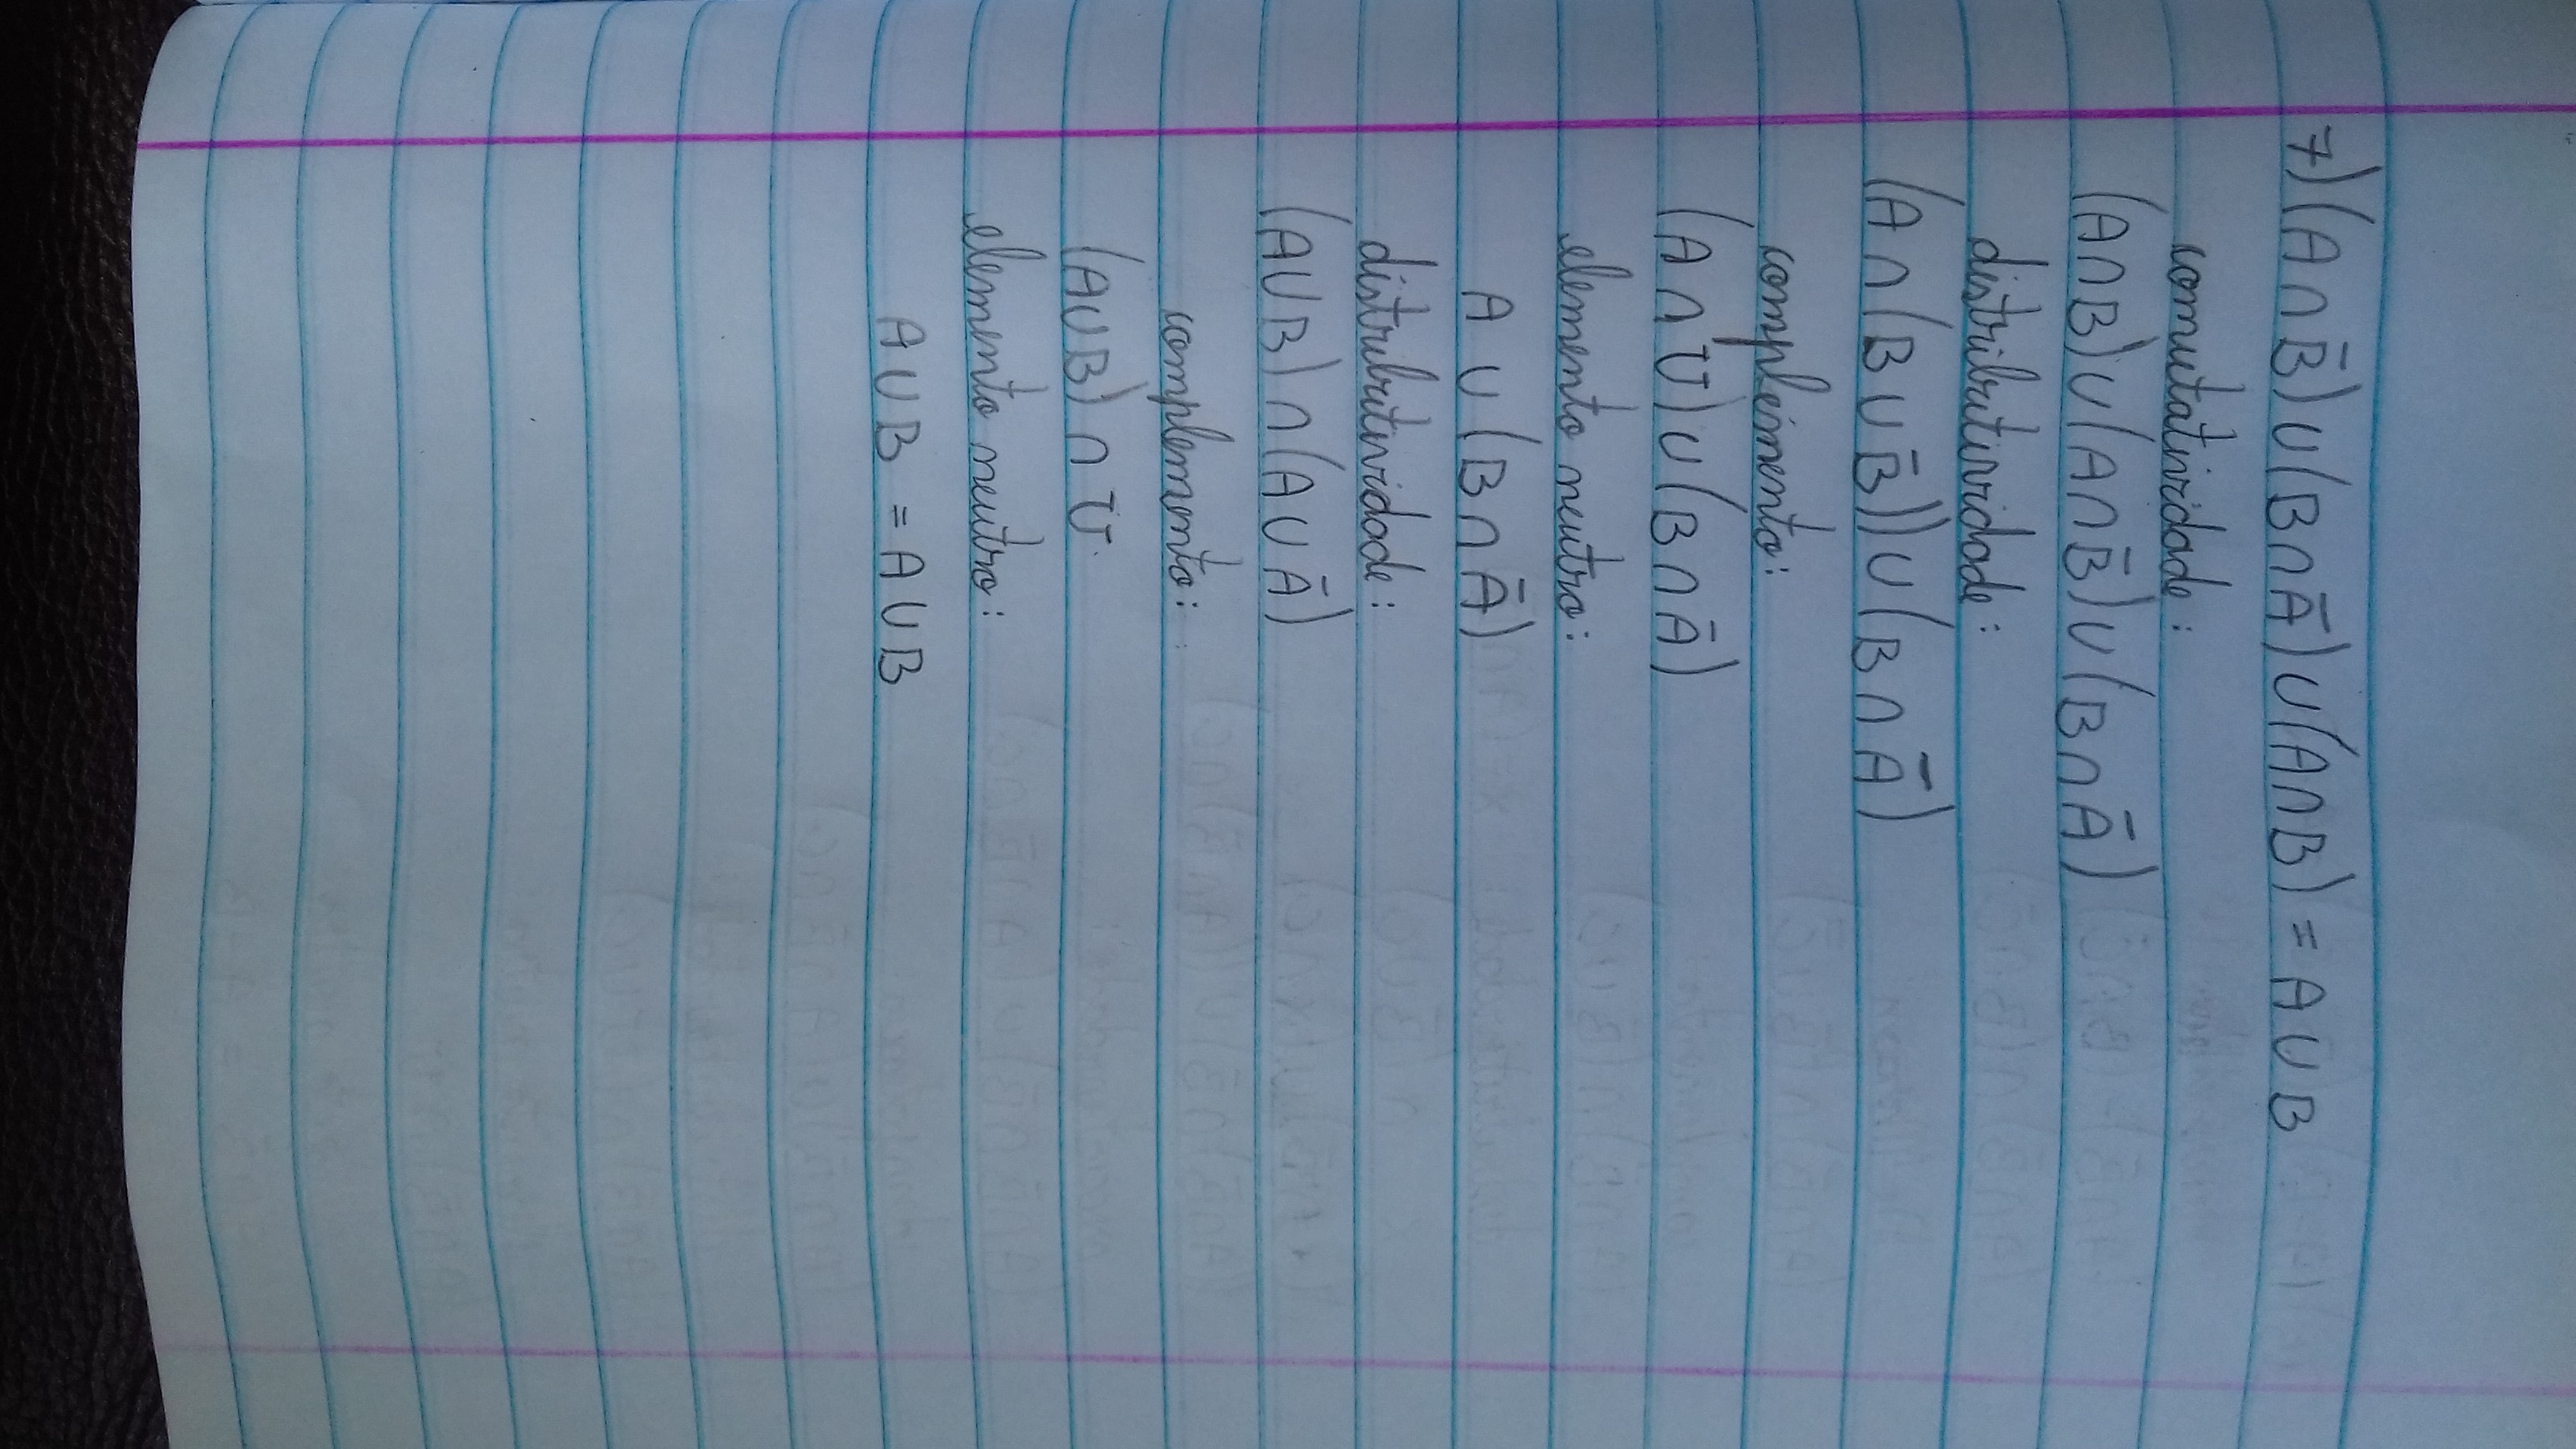 7) (A ∩ B̄) ∪ (B ∩ Ā) ∪ (A ∩ B) = A ∪ B
comutatividade:
(A ∩ B) ∪ (A ∩ B̄) ∪ (B ∩ Ā)
distributividade:
(A ∩ (B ∪ B̄)) ∪ (B ∩ Ā)
complemento:
(A ∩ U) ∪ (B ∩ Ā)
elemento neutro:
A ∪ (B ∩ Ā)
distributividade:
(A ∪ B) ∩ (A ∪ Ā)
complemento:
(A ∪ B) ∩ U
elemento neutro:
A ∪ B = A ∪ B